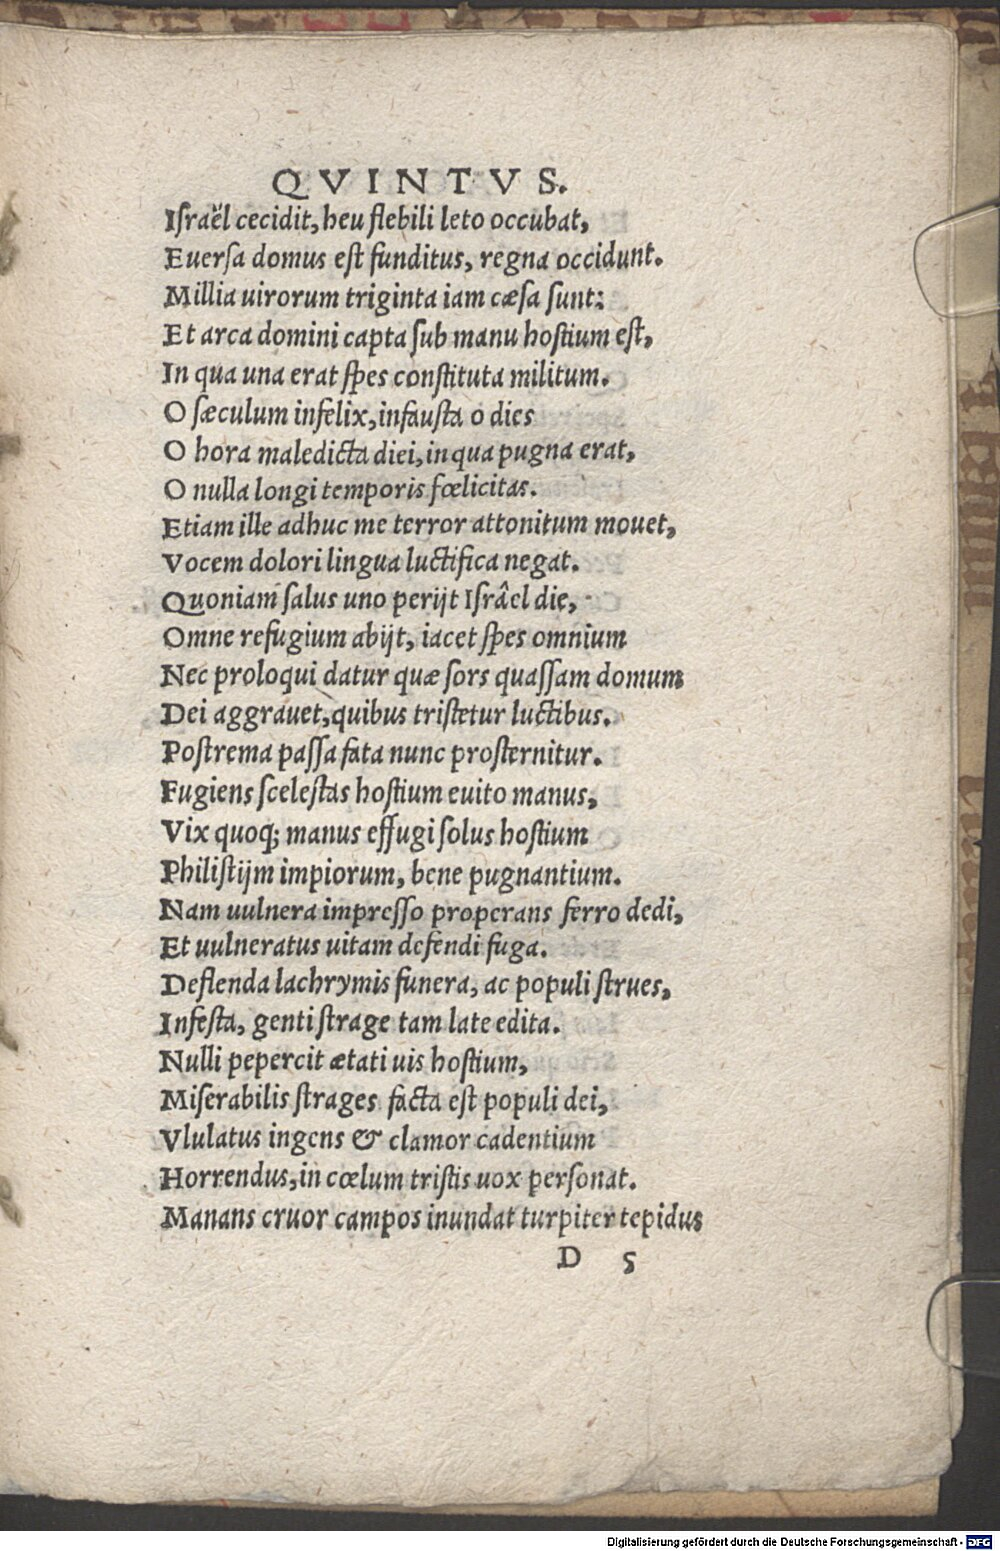 QVINTVS.
Iſraël cecidit, heu flebili leto occubat,
Euerſa domus eſt funditus, regna occidunt.
Millia uirorum triginta iam cæſa ſunt:
Et arca domini capta ſub manu hoſtium eſt,
In qua una erat ſpes conſtituta militum.
O ſæculum infelix, infauſta o dies
O hora maledicta diei, in qua pugna erat,
O nulla longi temporis fœlicitas.
Etiam ille adhuc me terror attonitum mouet,
Vocem dolori lingua luctifica negat.
Quoniam ſalus uno perijt Iſrâel die,
Omne refugium abijt, iacet ſpes omnium
Nec proloqui datur quæ ſors quaſſam domum
Dei aggrauet, quibus triſtetur luctibus.
Poſtrema paſſa fata nunc proſternitur.
Fugiens ſceleſtas hoſtium euito manus,
Vix quoq; manus effugi ſolus hoſtium
Philiſtijm impiorum, bene pugnantium.
Nam uulnera impreſſo properans ferro dedi,
Et uulneratus uitam defendi fuga.
Deflenda lachrymis funera, ac populi ſtrues,
Infeſta, genti ſtrage tam late edita.
Nulli pepercit ætati uis hoſtium,
Miſerabilis ſtrages facta eſt populi dei,
Vlulatus ingens & clamor cadentium
Horrendus, in cœlum triſtis uox perſonat.
Manans cruor campos inundat turpiter tepidus
D 5
Digitalisierung gefördert durch die Deutsche Forschungsgemeinschaft - DFG